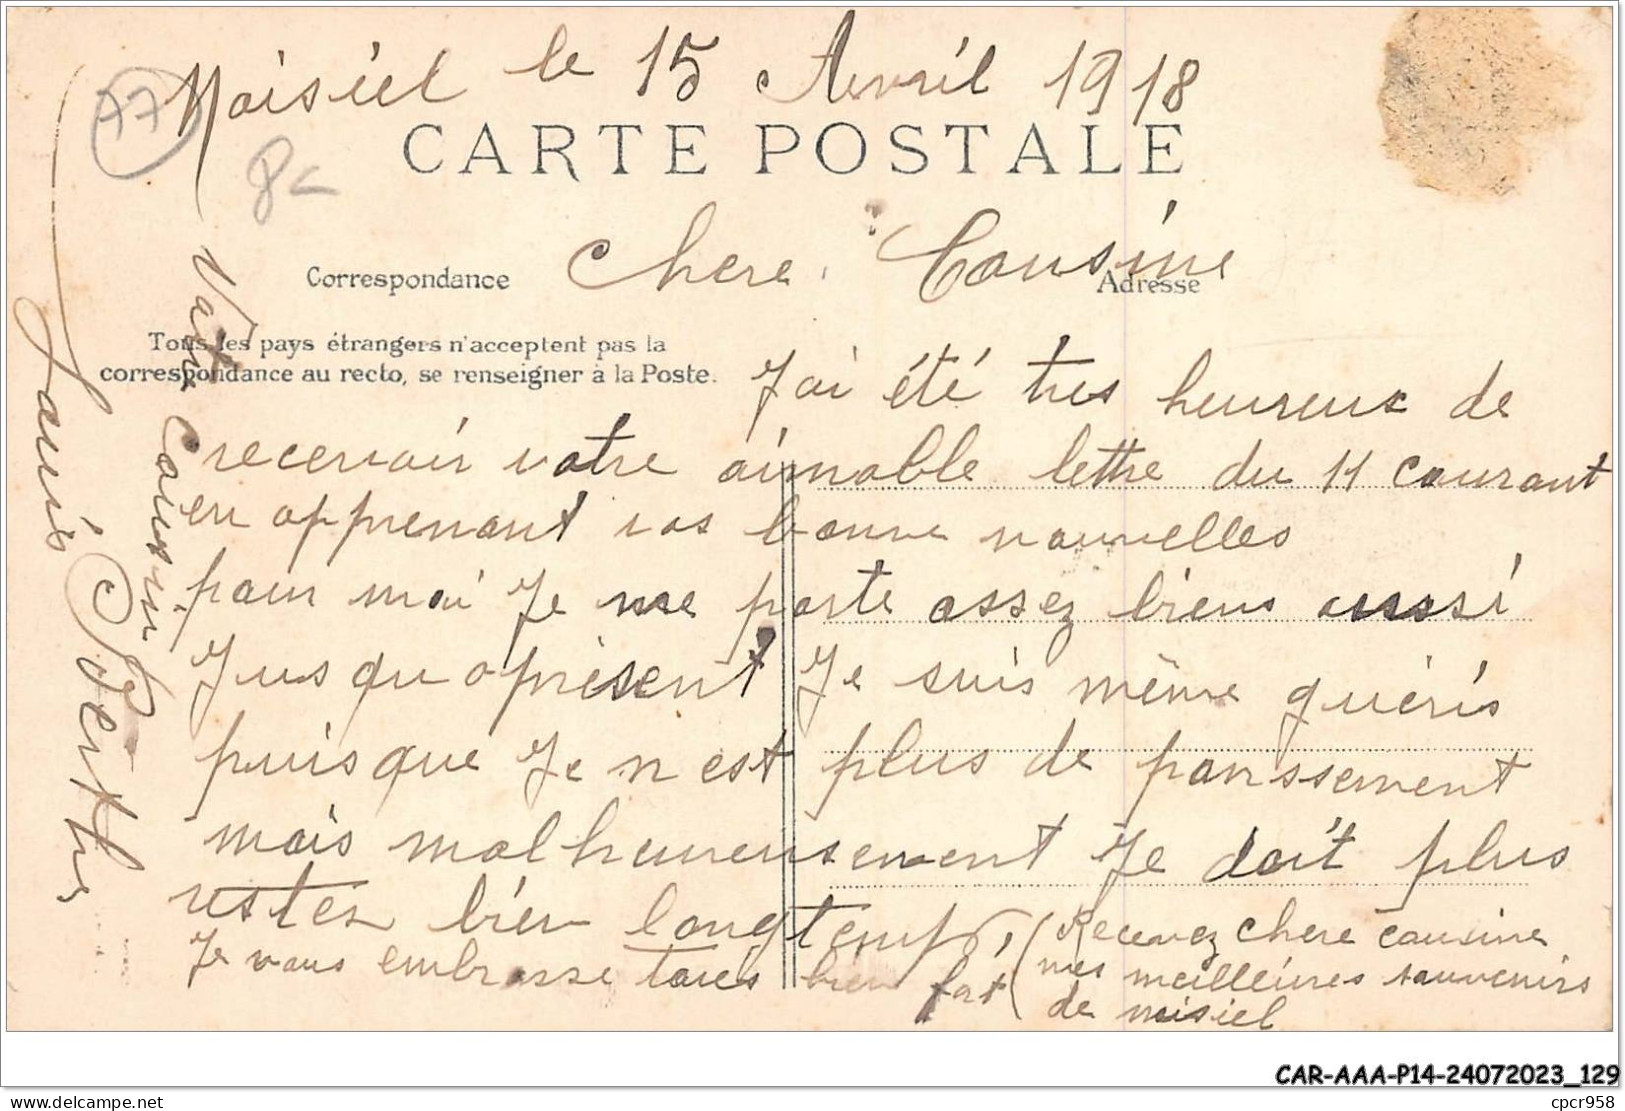 Noisiel le 15 Avril 1918
77
8€
CARTE POSTALE
Chere Cousine
Correspondance
Adresse
Tous les pays étrangers n'acceptent pas la
correspondance au recto, se renseigner à la Poste.
J'ai été tres heureux de
recevoir votre aimable lettre du 11 courant
en apprenant vos bonne nouvelles
pour moi Je me porte assez biens aussi
Jusqu a présent Je suis même guéris
puisque Je n est plus de panssement
mais malheureusement Je doit plus
restez bien longtemps,
Je vous embrasse toues bien fort
(Recevez chere cousine
mes meilleures souvenirs
de nisiel
Votre Cousin
Louis Berthe
CAR-AAA-P14-24072023_129
www.delcampe.net
cpcr958